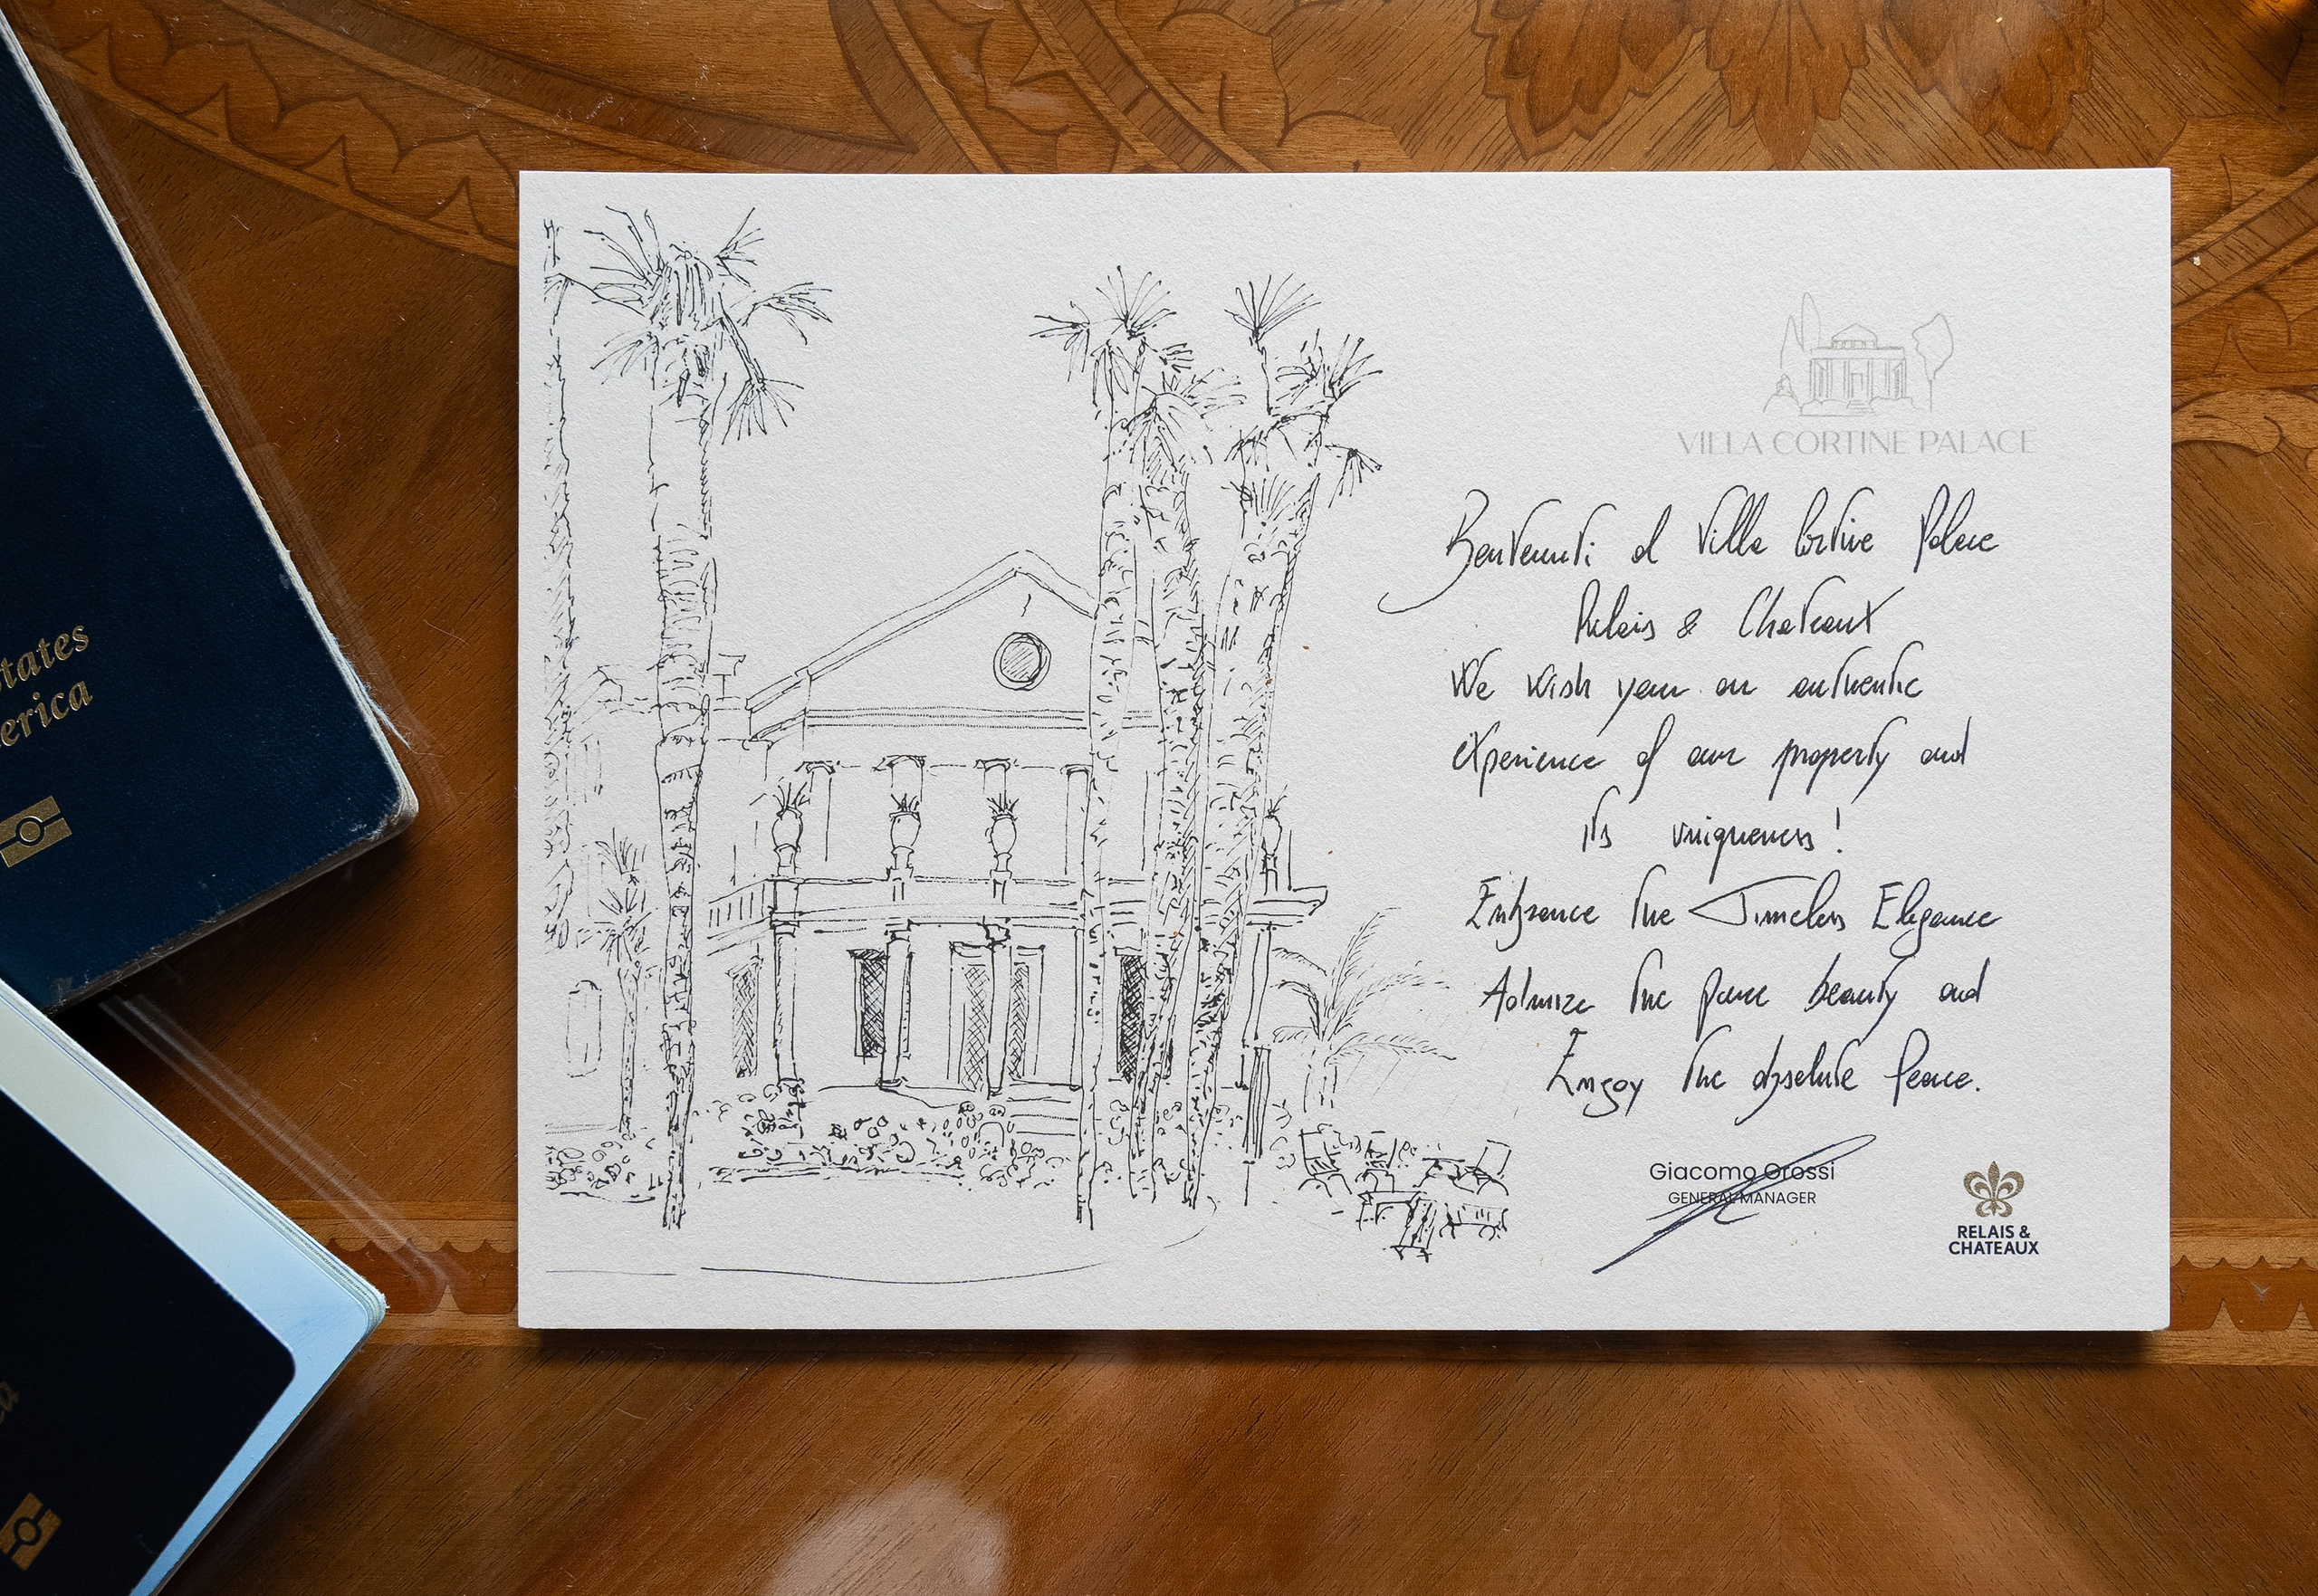 tates
erica
VILLA CORTINE PALACE
Benvenuti al Villa Cortine Palace
Relais & Chateaux
We wish you an authentic
experience of our property and
its uniqueness!
Entrance the Timeless Elegance
Admire the pure beauty and
Enjoy the absolute Peace.
Giacomo Orossi
GENERAL MANAGER
RELAIS &
CHATEAUX